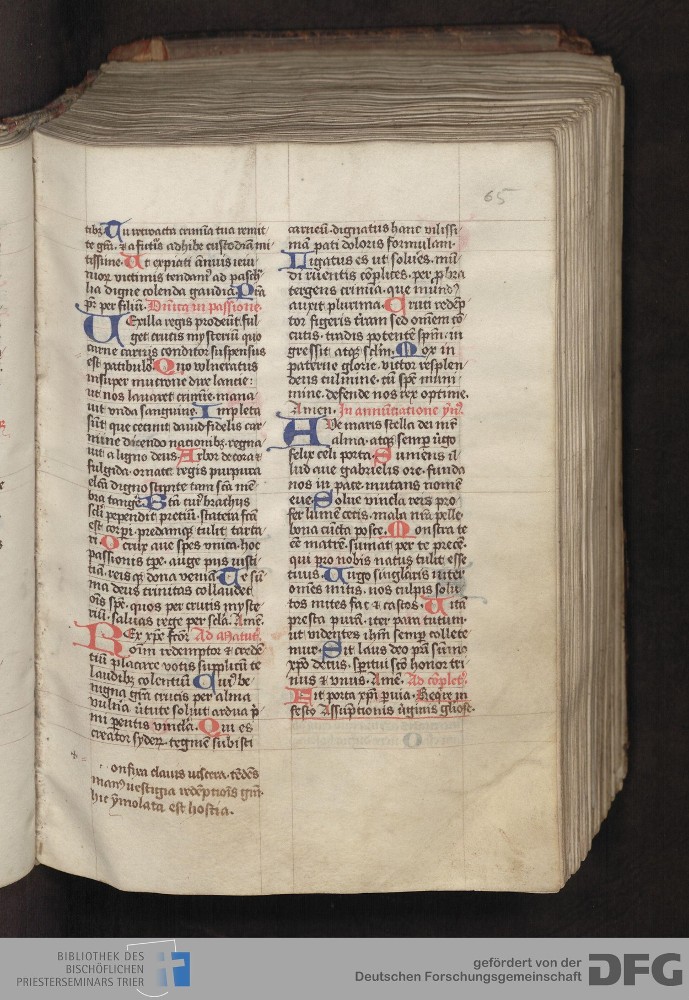 65
tibꝫ. Tu retroacta crimina tua remit
te gr̄a. ⁊ a futuris adhibe custodiam mi
tissime. Ut expiati annuis ieiu
nior̄ victimis tendam᷒ ad pasch
lia digne colenda gaudia. Prīa
pr̄ per filiū. Dn̄ica in passione.
Vexilla regis prodeūt ful
get crucis mysteriū quo
carne carnis conditor suspensus
est patibulo. Quo vulneratus
insuper mucrone dire lancie:
ut nos lauaret crimīe. mana
uit vnda sanguine. Impleta
sūt que cecinit dauid fidelis car
mine dicendo nacionibꝫ. regna
uit a ligno deus. Arbor decora ⁊
fulgida. ornata regis purpura
electa digno stipite tam scā mē
bra tangere. Beata cui᷒ brachijs
scl̄i pependit preciū. statera facta
est corp̄is predamqꝫ tulit tarta
ri. O crux aue spes vnica. hoc
passionis tp̄e. auge pijs iusti
tiā. reisqꝫ dona veniā. Te sū
ma deus trinitas collaudet
om̄s sp̄c. quos per crucis myste
riū. saluas rege per scl̄a. Amē.
Rex xp̄e fcōr Ad Matut.
om̄i redemptor ⁊ crede
tiū placare votis supplicū te
laudibꝫ colentiū. Cui᷒ be
nigna gr̄a crucis per alma
vulnīa v̓tute soluit ardua p̄
mi pentis vincla. Qui es
creator syderꝝ. tegmē subisti
onfixa clauis viscera. tēdēs
man᷒ vestigia redēptiōis gr̄a.
hic ȳmolata est hostia.
carneū. dignatus hanc vilissi
mā pati doloris formulam.
Ligatus es ut solues. mū
di ruentis cōplices. per p̄bra
tergens crimīa. que mund᷒
auxit plurima. Cruci redēp
tor figeris t̓ram sed om̄em cō
cutis. tradis potentē spm̄. in
grescit atqꝫ scl̄m. Mox in
paterne glorie. victor resplen
dens culmine. cū sp̄c muni
mine. defende nos rex optime.
Amen. In annūciatione ꝟgī᷒.
Ave maris stella dei mr̄
alma. atqꝫ semp v̓go
felix celi porta. Sumens il
lud aue gabrielis ore. funda
nos in pace mutans nomē
eue. Solue vincla reis pro
fer lumē cecis. mala nr̄a pelle
bona cūcta posce. Monstra te
eē matrē. sumat per te precē.
qui pro nobis natus tulit esse
tuus. Virgo singlāris inter
om̄es mitis. nos culpis solu
tos mites fac ⁊ castos. Vitā
presta purā. iter para tutum.
ut videntes ih̄m semp collete
mur. Sit laus deo p̄ri sūmo
xp̄o decus. sp̄itui scō honor tri
nus ⁊ vnus. Amē. Ad cōplet᷒.
Fit porta xp̄i p̄uia. Req̄re in
festo Assūptionis v̓ginis gl̓iose.
BIBLIOTHEK DES
BISCHÖFLICHEN
PRIESTERSEMINARS TRIER
gefördert von der
Deutschen Forschungsgemeinschaft
DFG